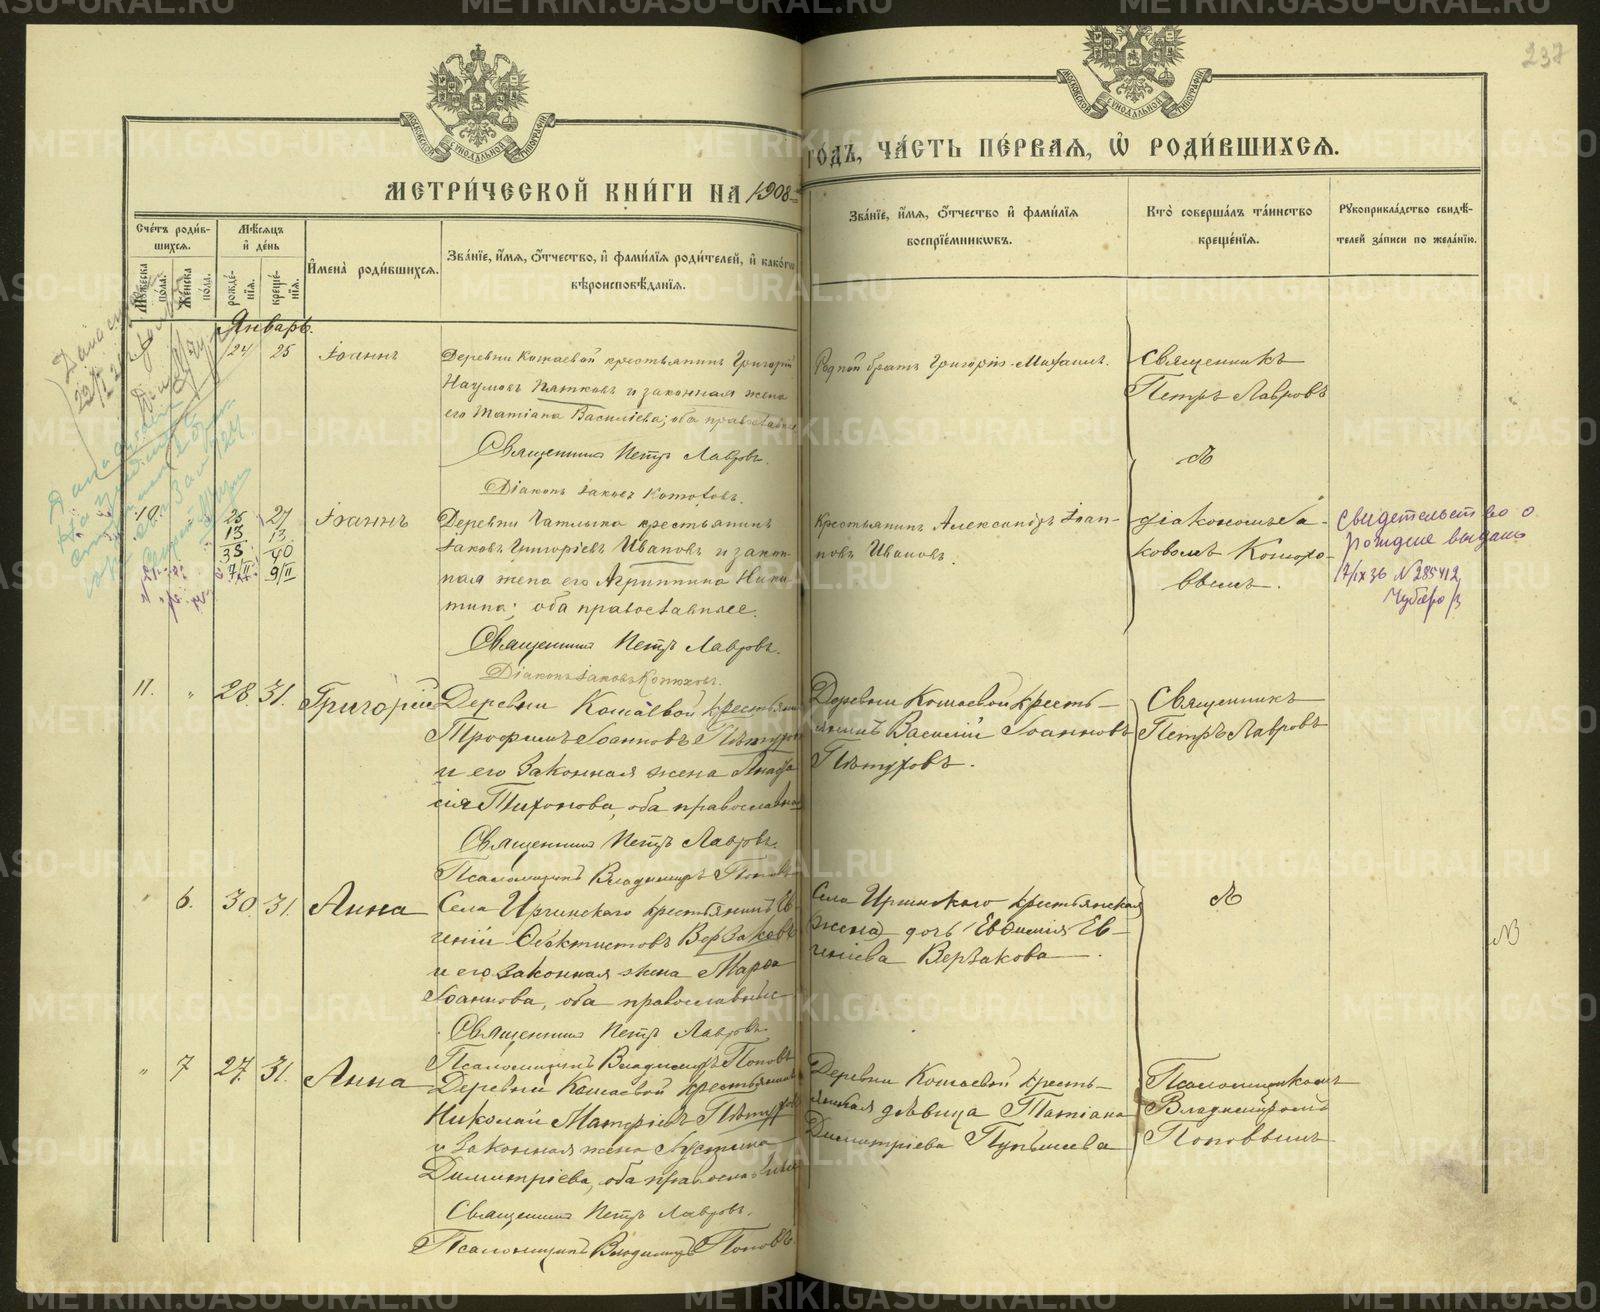 237
МОСКОВСКОЙ СѴНОДАЛЬНОЙ ТИПОГРАФІИ
МОСКОВСКОЙ СѴНОДАЛЬНОЙ ТИПОГРАФІИ
МЕТРИ́ЧЕСКОЙ КНИ́ГИ НА 1908
ГО́ДЪ, ЧА́СТЬ ПЕ́РВАЯ, Ѡ҆ РОДИ́ВШИХСЯ.
Сче́тъ роди́в-
шихся.
Мѹжеска по́ла.
Же́нска по́ла.
Мѣ́сяцъ
и҆ де́нь
рожде́-
нїя.
креще́-
нїя.
И҆мена̀ роди́вшихся.
Зва́нїе, и҆́мя, ѻ҆́тчество, и҆ фами́лїя роди́телей, и҆ како́гѡ
вѣроисповѣ́данїя.
Зва́нїе, и҆́мя, ѻ҆́тчество и҆ фами́лїя
воспрїе́мникѡвъ.
Кто̀ соверша́лъ та́инство
креще́нїя.
Рꙋкоприкла́дство свидѣ́-
телей за́писи по жела́нїю.
Январь.
24 25 Іоаннъ
Деревни Кошаевой крестьянинъ Григорій
Наумовъ Пятковъ и законная жена
его Татіана Василіева; оба православные
Священникъ Петръ Лавровъ.
Діаконъ Іаковъ Котоховъ.
Родной братъ Григорія Михаилъ.
Священникъ
Петръ Лавровъ
10. 25 27 Іоаннъ
13 13
38 40
7/II 9/II
Деревни Чатлыка крестьянинъ
Іаковъ Григоріевъ Ивановъ и закон-
ная жена его Агриппина Ники-
тина; оба православные.
Священникъ Петръ Лавровъ.
Крестьянинъ Александръ Іоан-
новъ Ивановъ.
діакономъ Іа-
ковомъ
свидетельство о
рождение выдано
17/IX 36 № 285412
11. " 28. 31. Григорій
Деревни Кошаевой крестьянинъ
Трофимъ Іоанновъ Пѣтуховъ
и его законная жена Анаста
сія Тихонова, оба православные
Священникъ Петръ Лавровъ.
Псаломщикъ Владимиръ Поповъ
Деревни Кошаевой кресть-
янинъ Василій Іоанновъ
Пѣтуховъ.
Священникъ
Петръ Лавровъ
" 6. 30. 31. Анна
Села Иргинскаго крестьянинъ Ев-
геній Ѳеоктистовъ Верзаковъ
и его законная жена Марѳа
Іоаннова, оба православные
Священникъ Петръ Лавровъ.
Псаломщикъ Владимиръ Поповъ
Села Иргинскаго крестьянская
жена дочь Евѳимія Ев-
геніева Верзакова.
" 7 27. 31. Анна
Деревни Кошаевой крестьянинъ
Николай Матѳіевъ Пѣтуховъ
и законная жена Іустина
Димитріева, оба православные
Священникъ Петръ Лавровъ.
Псаломщикъ Владимиръ Поповъ.
Деревни Кошаевой кресть-
янская дѣвица Татіана
Димитріева Пупышева
Псаломщикомъ
Владиміромъ
Поповымъ
METRIKI.GASO-URAL.RU